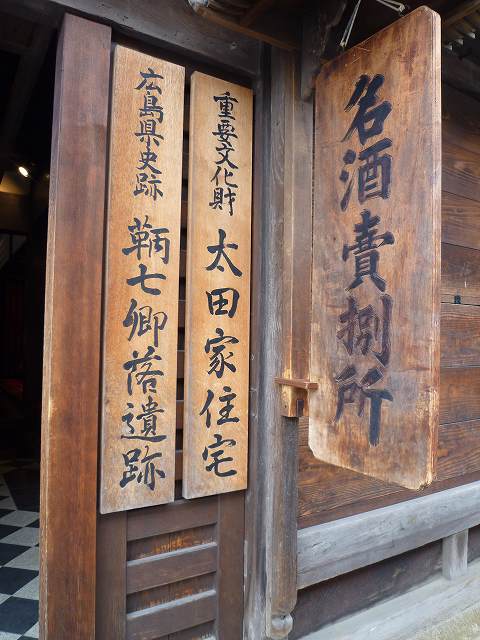 名酒賣捌所
重要文化財 太田家住宅
広島県史跡 鞆七卿落遺跡